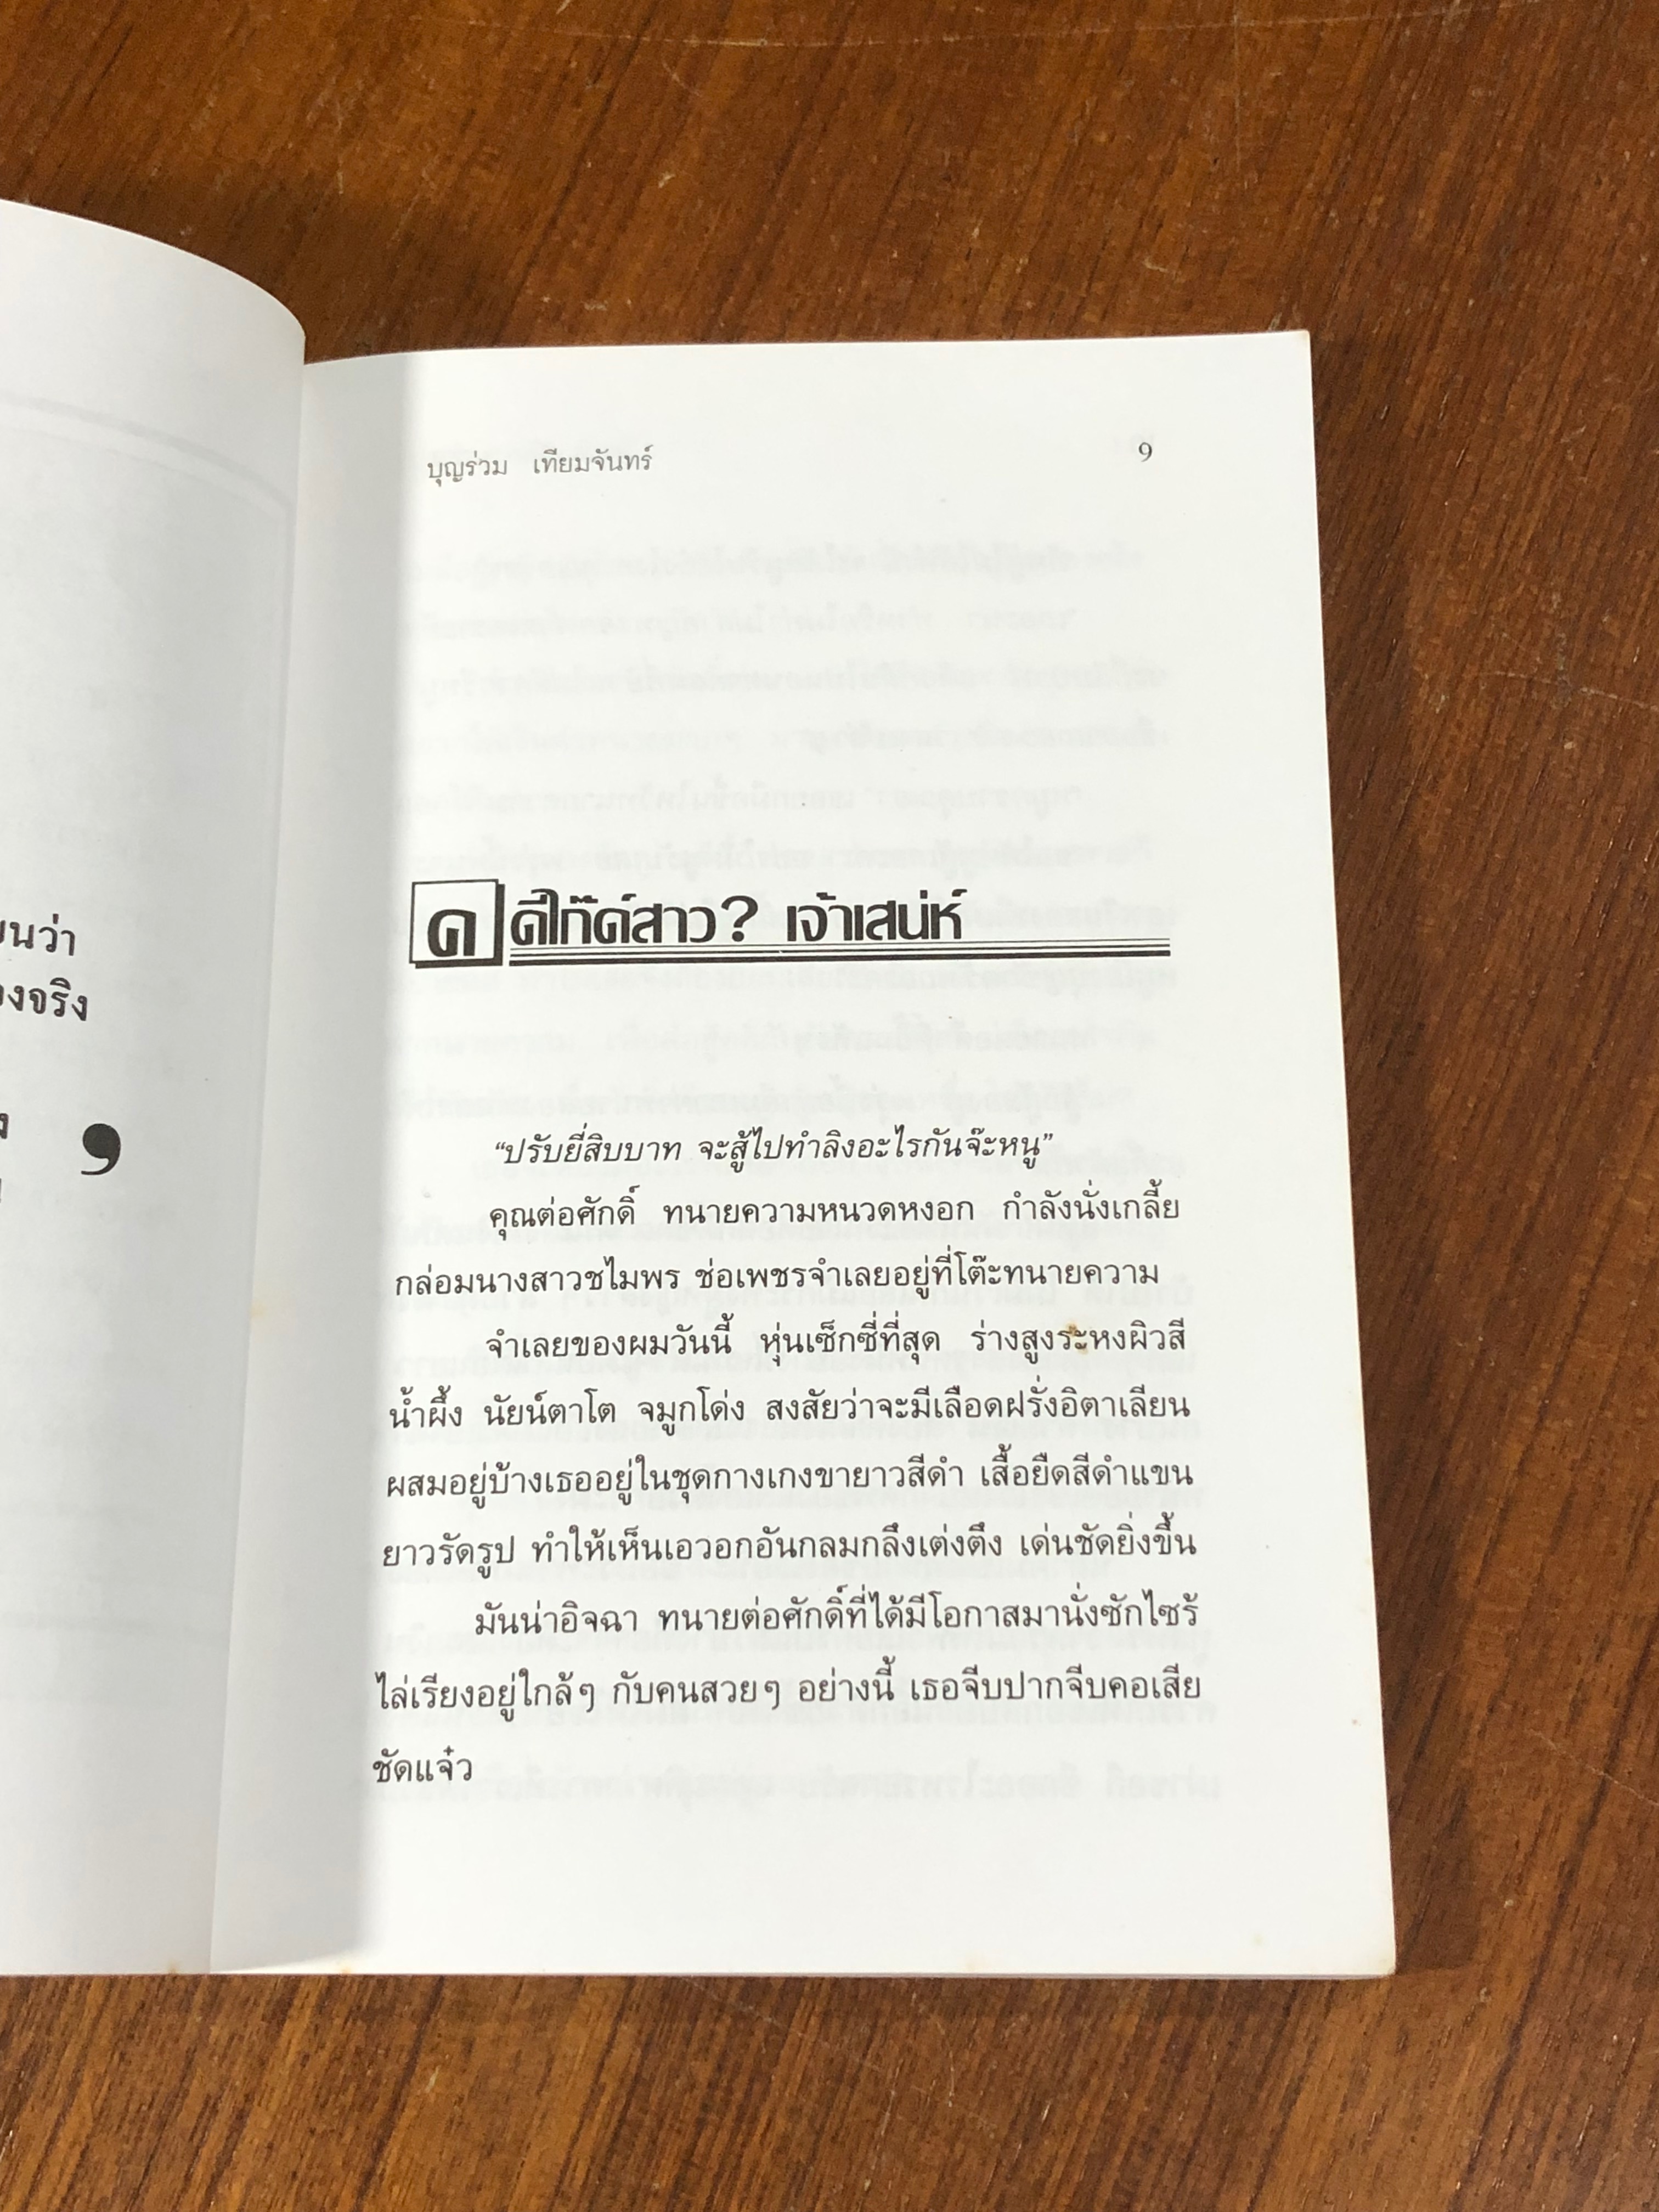 งจริง
,
บุญร่วม เทียมจันทร์ 9
คดีไก๊ด์สาว? เจ้าเสน่ห์
“ปรับยี่สิบบาท จะสู้ไปทำลิงอะไรกันจ๊ะหนู”
คุณต่อศักดิ์ ทนายความหนวดหงอก กำลังนั่งเกลี้ย
กล่อมนางสาวชไมพร ช่อเพชรจำเลยอยู่ที่โต๊ะทนายความ
จำเลยของผมวันนี้ หุ่นเซ็กซี่ที่สุด ร่างสูงระหงผิวสี
น้ำผึ้ง นัยน์ตาโต จมูกโด่ง สงสัยว่าจะมีเลือดฝรั่งอิตาเลียน
ผสมอยู่บ้างเธออยู่ในชุดกางเกงขายาวสีดำ เสื้อยืดสีดำแขน
ยาวรัดรูป ทำให้เห็นเอวอกอันกลมกลึงเต่งตึง เด่นชัดยิ่งขึ้น
มันน่าอิจฉา ทนายต่อศักดิ์ที่ได้มีโอกาสมานั่งซักไซร้
ไล่เรียงอยู่ใกล้ๆ กับคนสวยๆ อย่างนี้ เธอจีบปากจีบคอเสีย
ชัดแจ๋ว